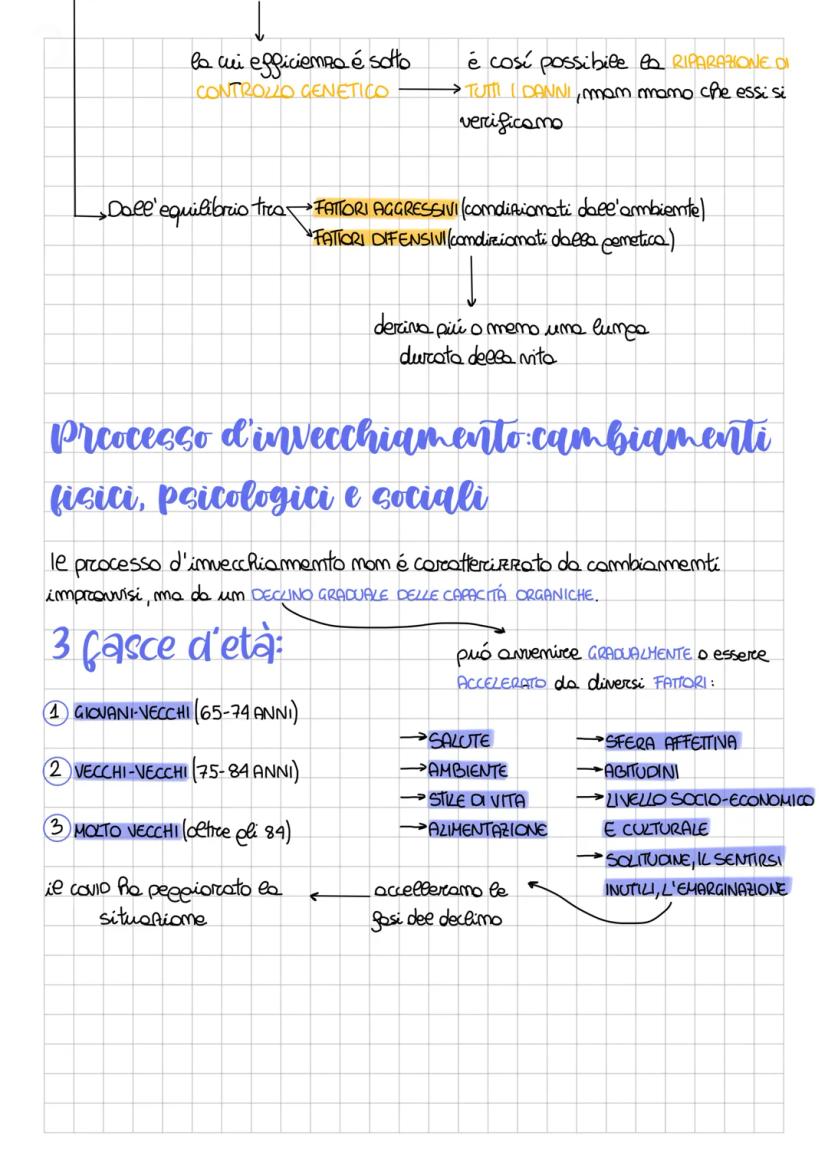 la cui efficienza é sotto
CONTROLLO GENETICO
é cosí possibile la RIPARAZIONE DI
TUTTI I DANNI, mam mano che essi si
verificano
Dall'equilibrio tra
FATTORI AGGRESSIVI (condizionati dall'ambiente)
FATTORI DIFENSIVI (condizionati dalla genetica)
deriva piú o meno una lunga
durata della vita
Processo d'invecchiamento: cambiamenti
fisici, psicologici e sociali
le processo d'invecchiamento non é caratterizzato da cambiamenti
improvvisi, ma da un DECLINO GRADUALE DELLE CAPACITÁ ORGANICHE.
3 fasce d'età:
puó avvenire GRADUALMENTE o essere
ACCELERATO da diversi FATTORI:
1 GIOVANI-VECCHI (65-74 ANNI)
2 VECCHI-VECCHI (75-84 ANNI)
3 MOLTO VECCHI (oltre gli 84)
→ SALUTE
→ AMBIENTE
→ STILE DI VITA
→ ALIMENTAZIONE
→ SFERA AFFETTIVA
→ ABITUDINI
→ LIVELLO SOCIO-ECONOMICO
E CULTURALE
→ SOLITUDINE, IL SENTIRSI
INUTILI, L'EMARGINAZIONE
accellerano le
fasi del declino
il covid ha peggiorato la
situazione